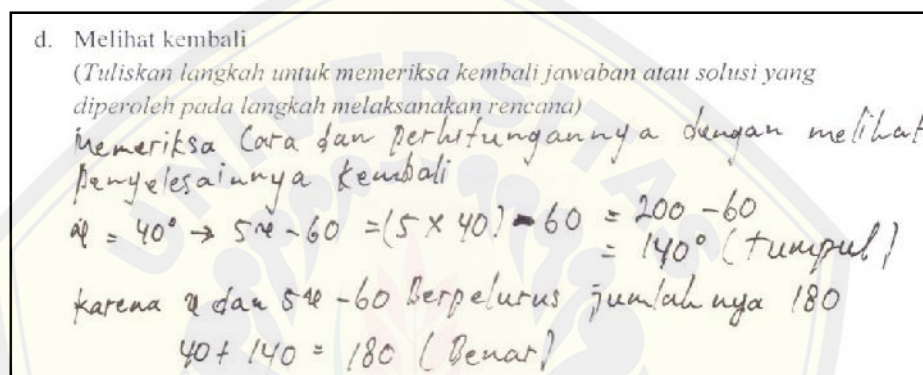 d. Melihat kembali
(Tuliskan langkah untuk memeriksa kembali jawaban atau solusi yang
diperoleh pada langkah melaksanakan rencana)
Memeriksa Cara dan Perhitungannya dengan melihat
Penyelesaiannya kembali
x = 40° → 5x - 60 = (5 × 40) - 60 = 200 - 60
= 140° (tumpul)
Karena x dan 5x - 60 Berpelurus jumlahnya 180
40 + 140 = 180 (Benar)
UNIVERSITAS